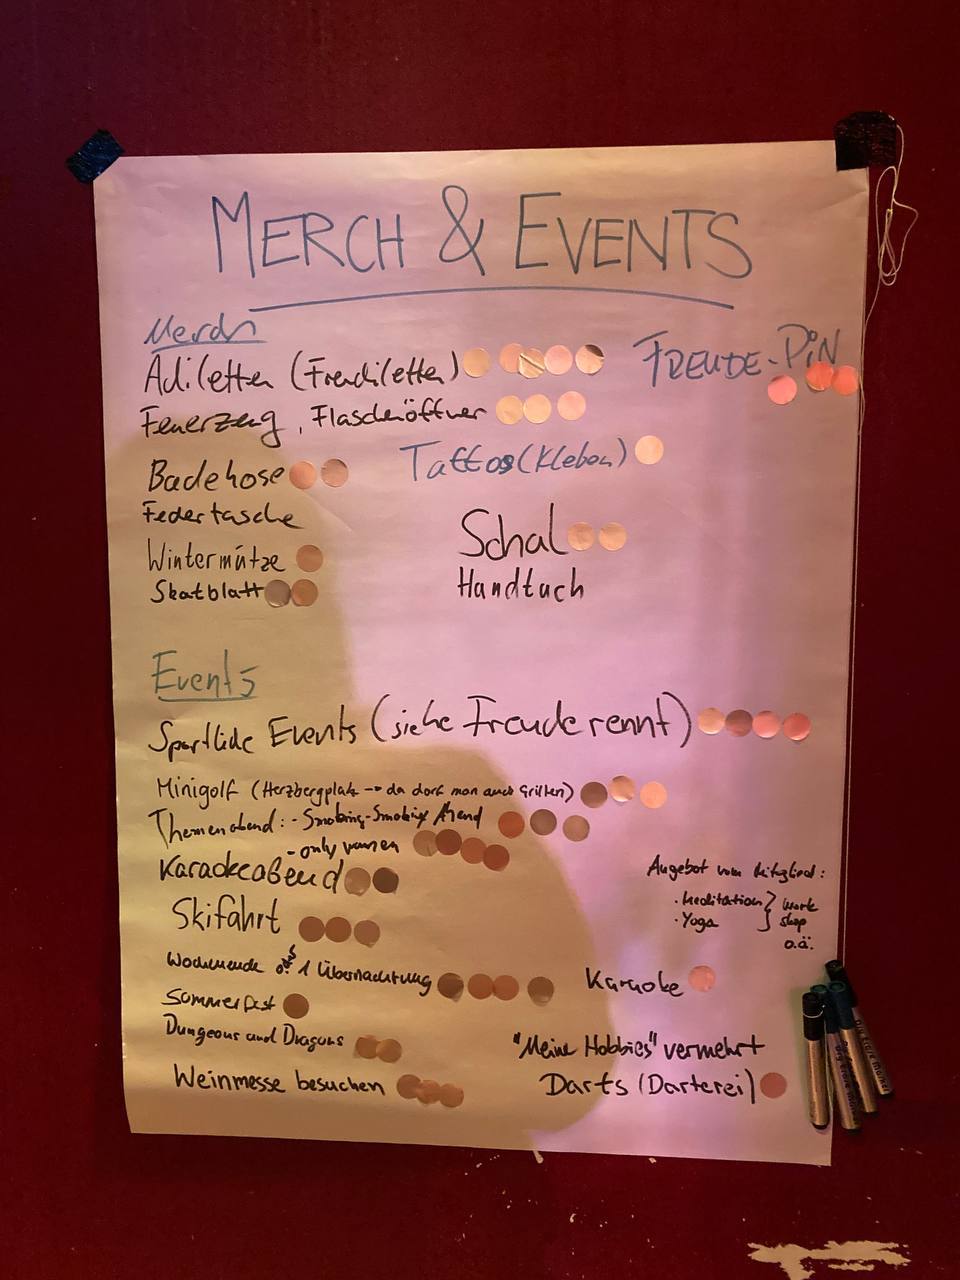 MERCH & EVENTS
Merch
Adiletten (Freudiletten)
FREUDE-PiN
Feuerzeug, Flaschenöffner
Tattoos (Kleben)
Badehose
Federtasche
Schal
Wintermütze
Handtuch
Skatblatt
Events
Sportliche Events (siehe Freude rennt)
Minigolf (Herzbergplatz -> da darf man auch Grillen)
Themenabend: - Smoking-Smoking Abend
- only
Karaokeabend
Angebot vom Mitglied:
· Meditation } Work
· Yoga } shop
o.ä.
Skifahrt
Wochenende 1 Übernachtung
Karaoke
Sommerfest
Dungeons and Dragons
"Meine Hobbies" vermehrt
Weinmesse besuchen
Darts (Darterei)